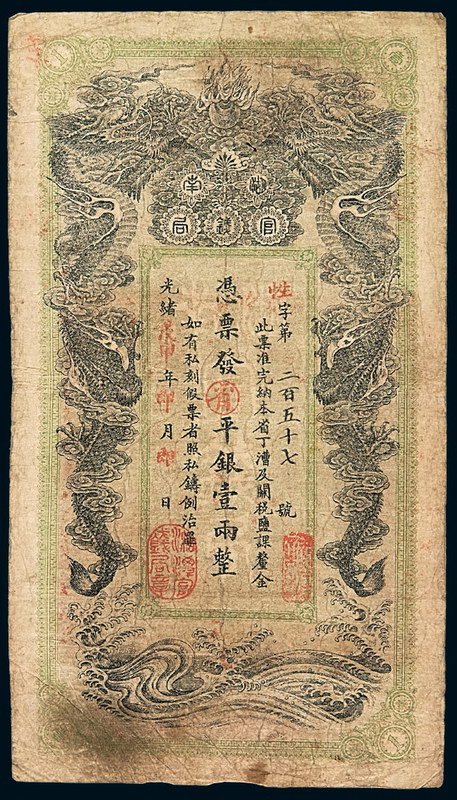 湖南
官錢局
性字第二百五十七號
此票准完納本省丁漕及關稅鹽課釐金
憑票發省平銀壹兩整
如有私刻假票者照私鑄例治罪
光緒年印月印日
湖南官錢局章
1
1